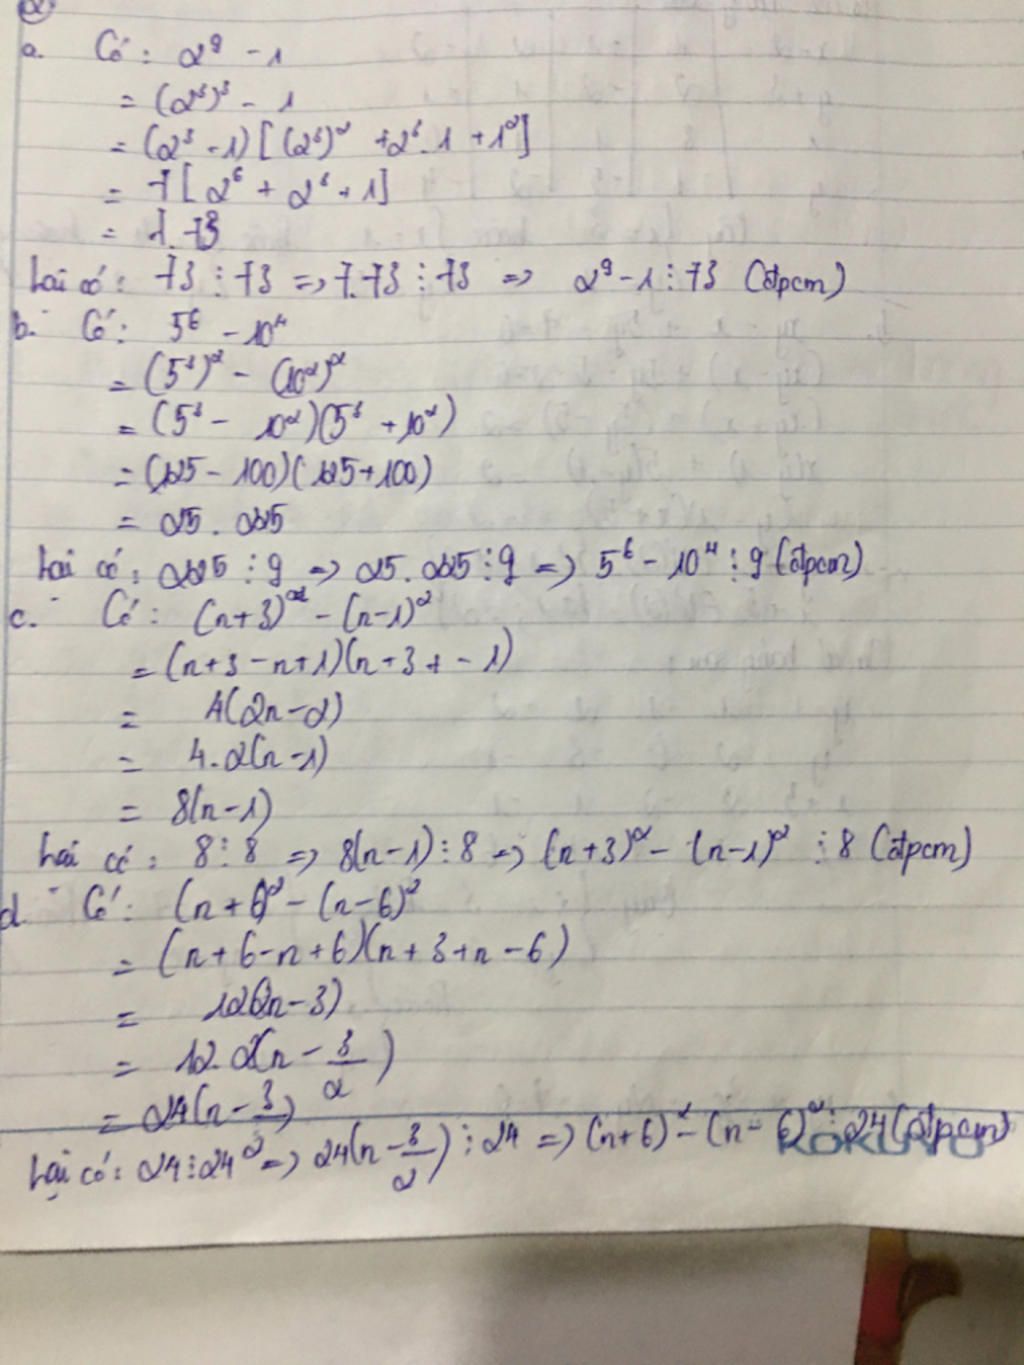 a. Có: 2⁹ - 1
= (2³)³ - 1
= (2³ - 1)[(2³)² + 2³.1 + 1²]
= 7[2⁶ + 2³ + 1]
= 7.73
Lại có: 73 ⋮ 73 => 7.73 ⋮ 73 => 2⁹ - 1 ⋮ 73 (đpcm)
b. Có: 5⁶ - 10⁴
= (5³)² - (10²)²
= (5³ - 10²)(5³ + 10²)
= (125 - 100)(125 + 100)
= 25.225
Lại có: 225 ⋮ 9 => 25.225 ⋮ 9 => 5⁶ - 10⁴ ⋮ 9 (đpcm)
c. Có: (n+3)² - (n-1)²
= (n+3-n+1)(n+3+-1)
= 4(2n-2)
= 4.2(n-1)
= 8(n-1)
Lại có: 8 ⋮ 8 => 8(n-1) ⋮ 8 => (n+3)² - (n-1)² ⋮ 8 (đpcm)
d. Có: (n+6)² - (n-6)²
= (n+6-n+6)(n+3+n-6)
= 12(2n-3)
= 12.2(n - 3/2)
= 24(n - 3/2)
Lại có: 24 ⋮ 24 => 24(n - 3/2) ⋮ 24 => (n+6)² - (n-6)² ⋮ 24 (đpcm)
KOKUYO